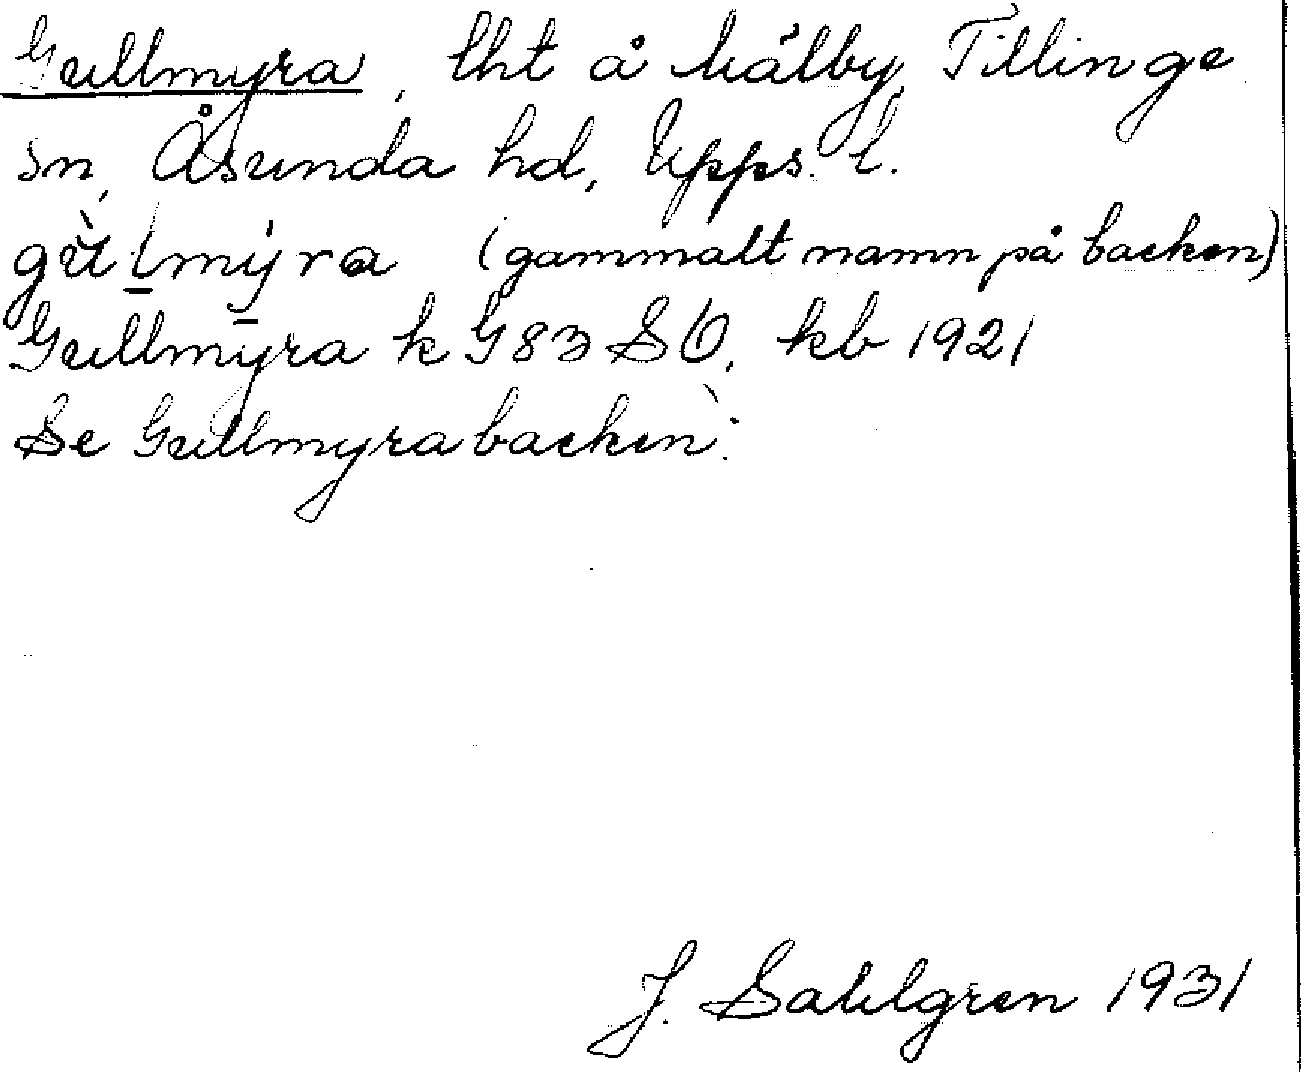 Gullmyra, lht å Kälby, Tillinge
sn, Åsunda hd, Upps. l.
gùlmýra (gammalt namn på backen)
Gullmyra k G83 SO, kb 1921
Se Gullmyrabacken.
J. Sahlgren 1931